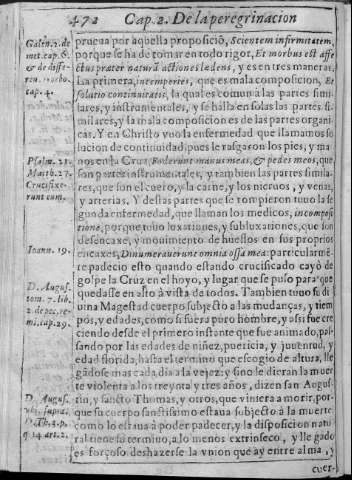 472 Cap. 2. De la peregrinacion
prueua por aquella proposició, Scientem infirmitatem,
porque se ha de tomar en todo rigor, Et morbus est affe
ctus præter naturã actiones lædens, y es en tres maneras.
La primera, intemperies, que es mala composicion, Et
solutio continuitatis, la qual es comun a las partes simi-
lares, y instrumentales, y se halla en solas las partes si-
milares, y la mala composicion es de las partes organi-
cas. Y en Christo vuo la enfermedad que llamamos so
lucion de continuidad, pues le rasgaron los pies, y ma
nos en la Cruz, Foderunt manus meas, & pedes meos, que
son partes instrumentales, y tambien las partes simila-
res, que son el cuero, y la carne, y los nieruos, y venas,
y arterias. Y destas partes que se rompieron tuuo la se
gunda enfermedad, que llaman los medicos, incomposi
tione, porque tuuo luxationes, y subluxationes, que son
desencaxe, y mouimiento de huessos en sus proprios
encaxes, Dinumerauerunt omnia ossa mea: particularmē
te padecio esto quando estando crucificado cayò de
golpe la Cruz en el hoyo, y lugar que se puso para que
quedasse en alto à vista de todos. Tambien tuuo su di
uina Magestad cuerpo subjecto a las mudanças, y tiem
pos, y edades, como si fuera puro hombre, y assi fue cre
ciendo desde el primero instante que fue animado, pas
sando por las edades de niñez, puericia, y juuentud, y
edad florida, hasta el termino que escogio de altura, lle
gãdose mas cada dia a la vejez: y sino le dieran la muer
te violenta a los treynta y tres años, dizen san Augus-
tin, y sancto Thomas, y otros, que viniera a morir, por-
que su cuerpo sanctissimo estaua subjecto à la muerte
como lo estaua à poder padecer, y la disposicion natu
ral tiene su termino, a lo menos extrinseco, y llegado
es forçoso deshazerse la vnion que ay entre alma, y
cuer-
Galen. 2. de
met. cap. 6.
& de diffe-
ren. morbo.
cap. 4.
Psalm. 21.
Matth. 27.
Crucifixe-
runt eum.
Ioann. 19.
D. Augus.
tom. 7. lib.
2. de pec. re-
mi. cap. 29.
D. Augus.
vbi. supra.
D. Th. 3. p.
q. 14. art. 2.